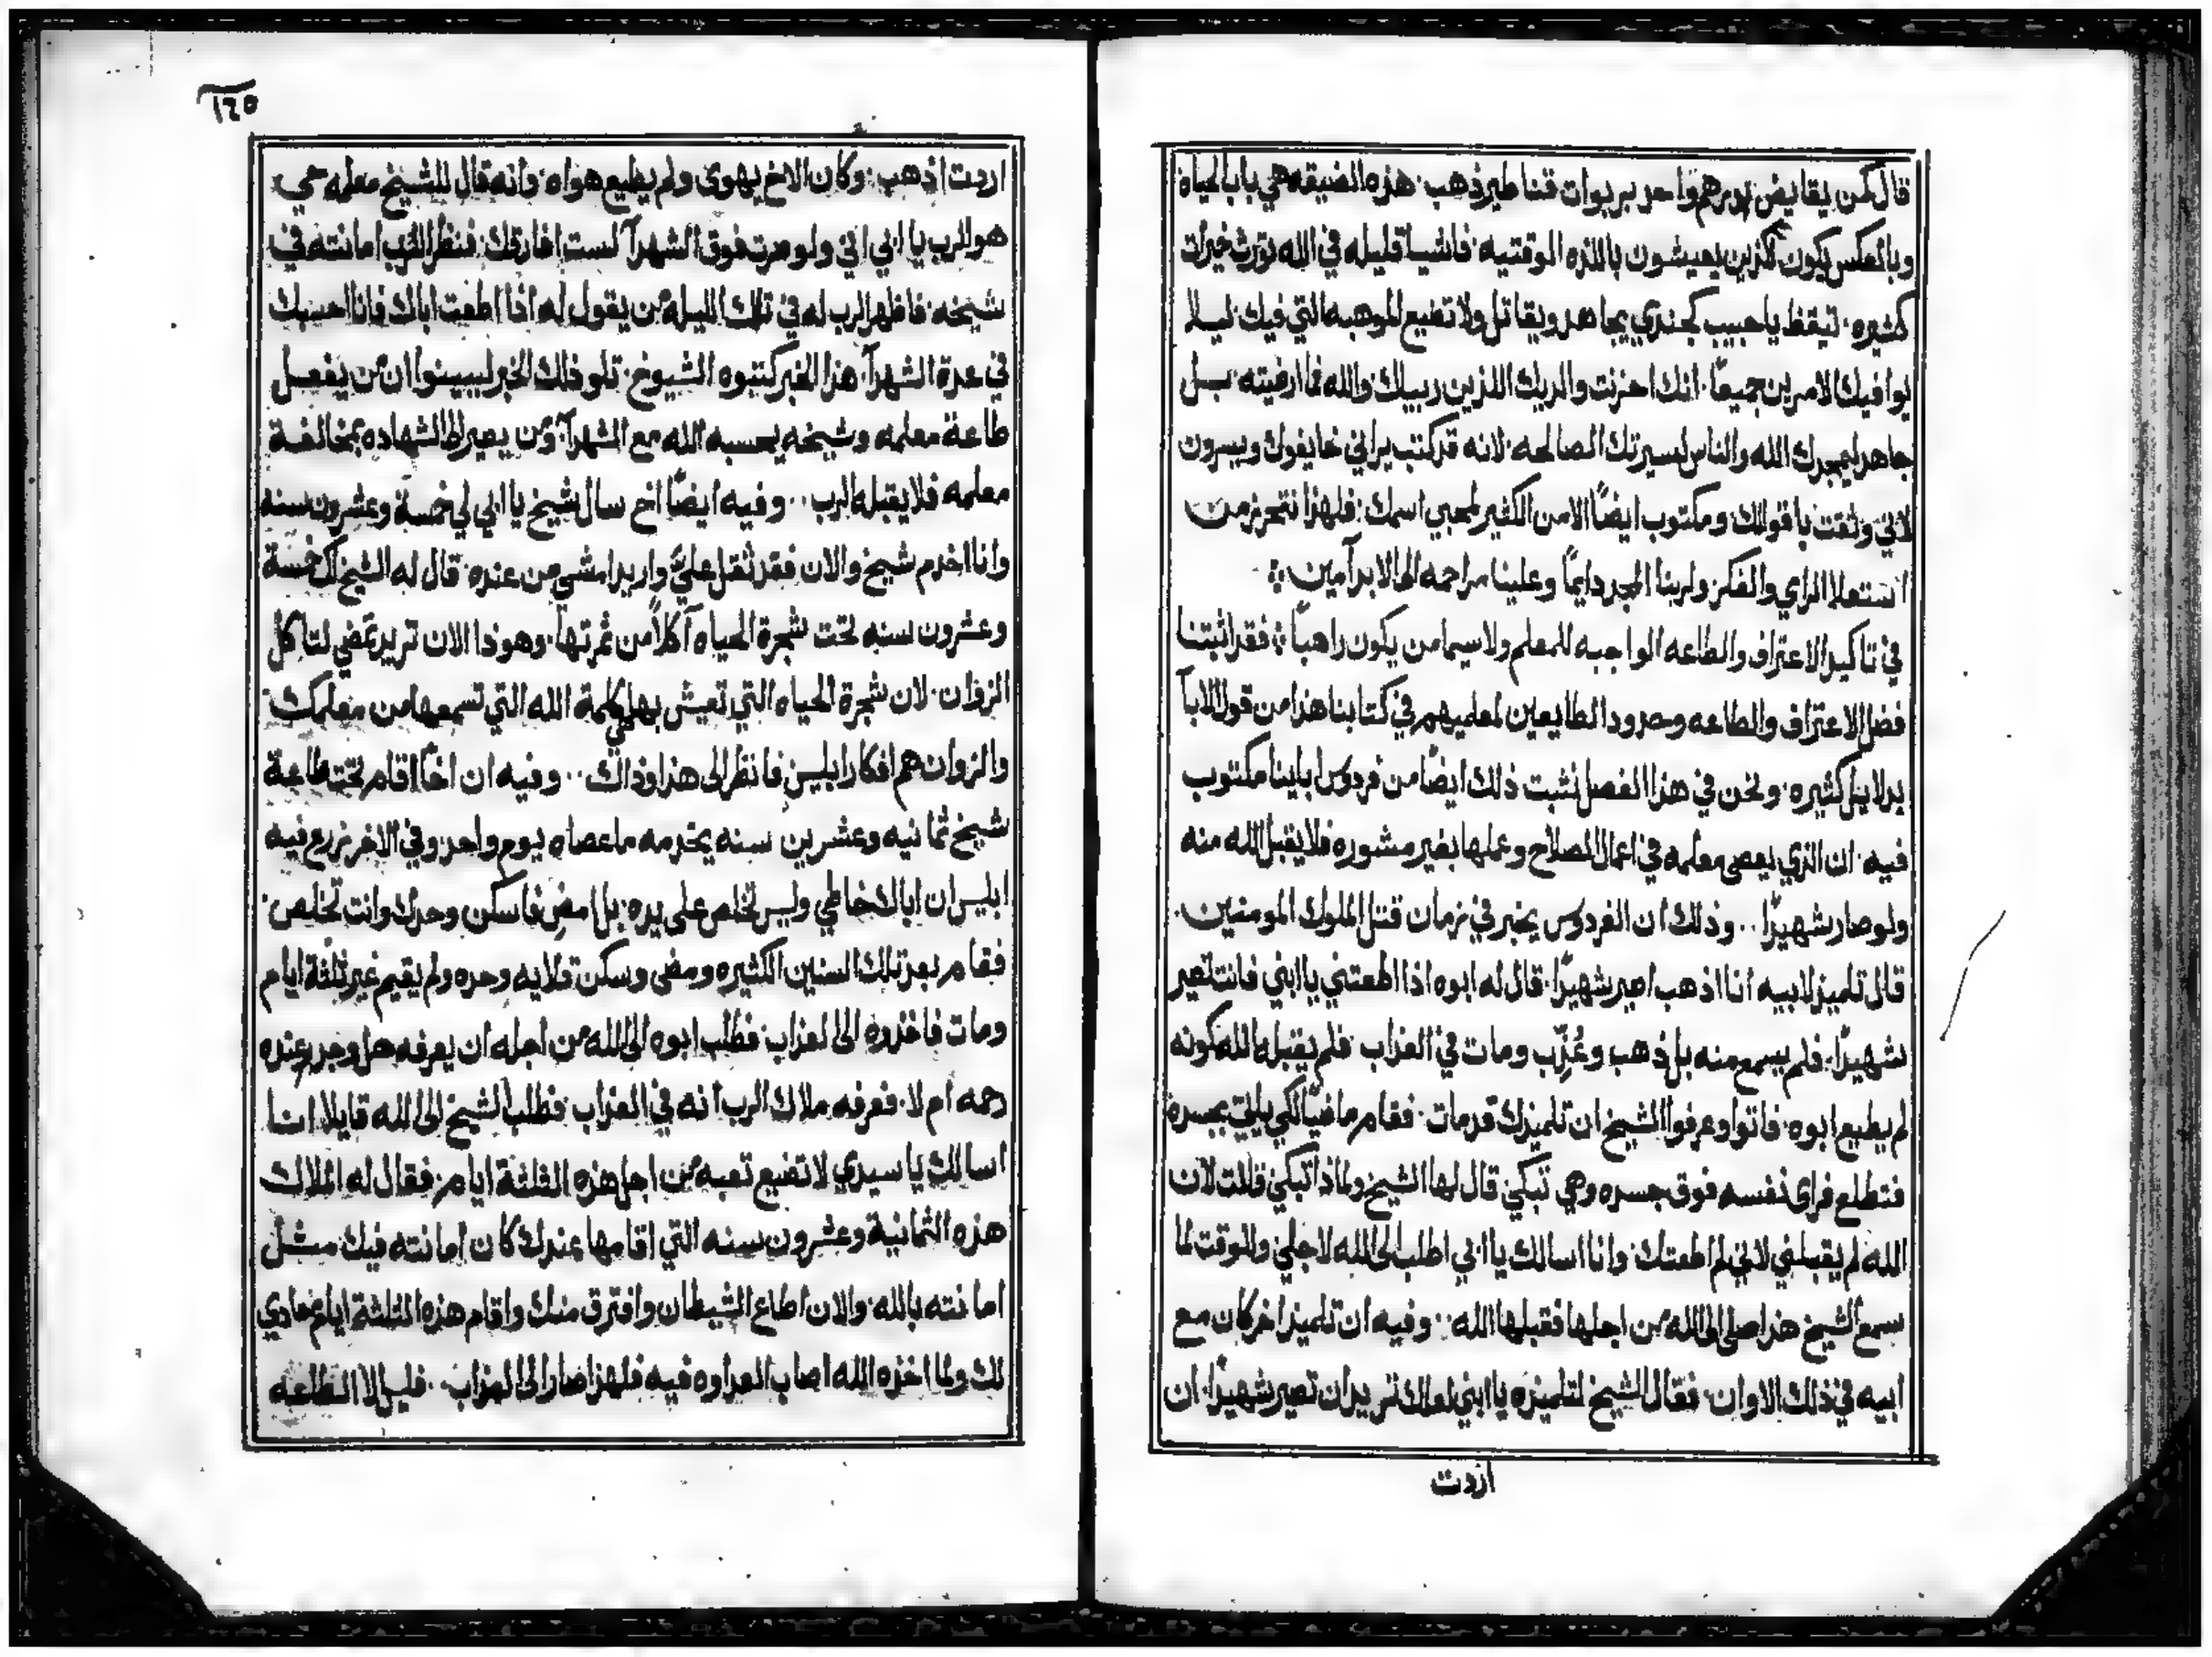 قال كمن يقايض بدرهم واحد بربوات قناطير ذهب. هذه الضيقه هي باب الحياه
وبالعكس يكون الذين يعيشون باللذه الموقتيه. فاشيا قليله في الله تورث خيرات
كثيره. تيقظ يا حبيب كجندي يجاهد ويقاتل ولا تضيع الموهبه التي فيك ليلا
يوافيك الامرين جميعًا. انك احزنت والديك اللذين ربياك والله فما ارضيته بل
جاهد ليمجدك الله والناس لسيرتك الصالحه. لانه قد كتب يراني خايفوك ويسرون
لاني وثقت باقوالك ومكتوب ايضًا الامن الكثير لمحبي اسمك: فلهذا نتحرز من
استعلا الراي والفكر ولربنا المجد دايمًا وعلينا مراحمه الى الابد آمين
في تاكيد الاعتراف والطاعه الواجبه للمعلم ولا سيما من يكون راهبًا فقد اثبتنا
فضل الاعتراف والطاعه وحدود الطايعين لمعلميهم في كتابنا هذا من قول الابآ
بدلايل كثيره. ونحن في هذا الفصل نثبت ذلك ايضًا من فردوس اباينا مكتوب
فيه. ان الذي يعصى معلمه في اعمال الصلاح وعملها بغير مشوره فلا يقبل الله منه
ولو صار شهيدًا.. وذلك ان الفردوس يخبر في زمان قتل الملوك المومنين.
قال تلميذ لابيه انا اذهب اصير شهيدًا. قال له ابوه اذا اطعتني يا ابني فانت تصير
شهيدًا. فلم يسمع منه بل ذهب وعُذّب ومات في العذاب فلم يقبله الله كونه
لم يطيع ابوه. فاتوا وعرفوا الشيخ ان تلميذك قد مات. فقام ماضيًا لكي ياتي بجسده
فتطلع فراى نفسه فوق جسده وهي تبكي قال لها الشيخ ولماذا تبكي قالت لان
الله لم يقبلني لاني لم اطعتك. وانا اسالك يا ابي اطلب الى الله لاجلي وللوقت لما
سمع الشيخ هذا صلى الى الله من اجلها فقبلها الله.. وفيه ان تلميذ اخر كان مع
ابيه في ذلك الاوان. فقال الشيخ لتلميذه يا ابني لعلك تريد ان تصير شهيدًا. ان
اردت
١٢٥
اردت اذهب. وكان الاخ يهوى ولم يطيع هواه. وانه قال للشيخ معلمه حي
هو الرب يا ابي اني ولو صرت فوق الشهدآ لست افارقك. فنظر الرب امانته في
شيخه. فاظهر الرب له في تلك الليله من يقول له اذا اطعت اباك فانا احسبك
في عدة الشهدآ. هذا الخبر كتبوه الشيوخ. تلو ذلك الخبر ليبينوا ان من يفعل
طاعة معلمه وشيخه يحسبه الله مع الشهدآ. ومن يصير الى الشهاده بمخالفة
معلمه فلا يقبله الرب.. وفيه ايضًا اخ سال شيخ يا ابي لي خمسة وعشرون سنه
وانا اخدم شيخ والان فقد ثقل عليّ واريد امشي من عنده. قال له الشيخ لك خمسة
وعشرون سنه تحت شجرة الحياه آكلاً من ثمرتها. وهوذا الان تريد تمضي لتاكل
الزوان. لان شجرة الحياه التي تعيش بها هي كلمة الله التي تسمعها من معلمك
والزوان هم افكار ابليس فانظر الى هذا وذاك.. وفيه ان اخًا اقام تحت طاعة
شيخ ثمانيه وعشرين سنه يخدمه ما عصاه يوم واحد وفي الاخر زرع فيه
ابليس ان اباك خاطي وليس تخلص على يده. بل امضِ فاسكن وحدك وانت تخلص.
فقام بعد تلك السنين الكثيره ومضى وسكن قلايه وحده ولم يقيم غير ثلثة ايام
ومات فاخذوه الى العذاب. فطلب ابوه الى الله من اجله ان يعرفه هل وجد عنده
رحمه ام لا. فعرفه ملاك الرب انه في العذاب. فطلب الشيخ الى الله قايلا انا
اسالك يا سيدي لا تضيع تعبه من اجل هذه الثلثة ايام. فقال له الملاك
هذه الثمانية وعشرون سنه التي اقامها عندك كان امانته فيك مثل
امانته بالله. والان اطاع الشيطان وافترق منك واقام هذه الثلثة ايام معادي
لك ولما اخذه الله اصاب العداوه فيه فلهذا صار الى العذاب. فليس الا الطاعه